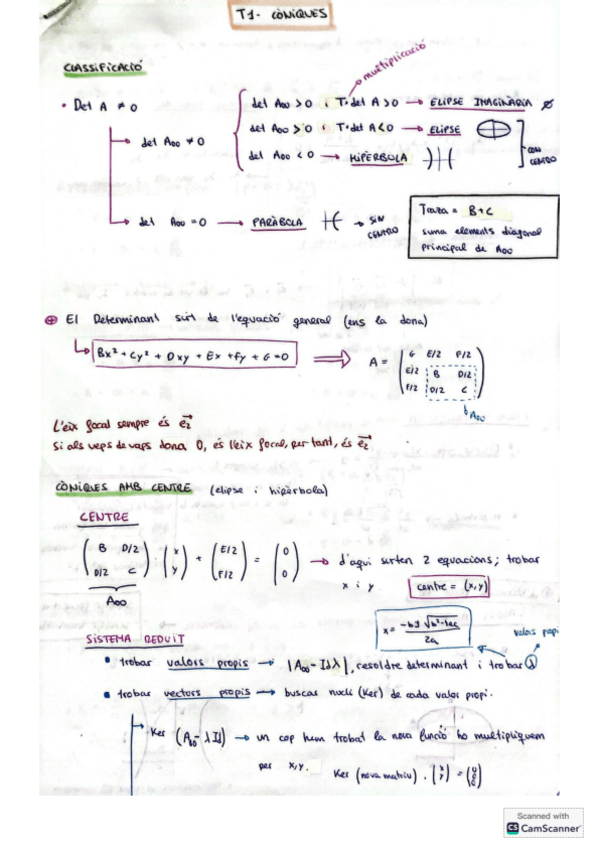 T1- CÒNIQUES
CLASSIFICACIÓ
multiplicació
• Det A ≠ 0
det A₀₀ ≠ 0
det A₀₀ > 0 i T·det A > 0 → ELIPSE IMAGINÀRIA ∅
det A₀₀ > 0 i T·det A < 0 → ELIPSE
det A₀₀ < 0 → HIPÈRBOLA
CON CENTRO
det A₀₀ = 0 → PARÀBOLA → SIN CENTRO
Traza = B+C
suma elements diagonal
principal de A₀₀
⊕ El Determinant surt de l'equació general (ens la dona)
Bx² + Cy² + Dxy + Ex + Fy + G = 0 ⟹ A =
G E/2 F/2
E/2 B D/2
F/2 D/2 C
A₀₀
L'eix focal sempre és e₂
Si als veps de vaps dona 0, és l'eix focal, per tant, és e₂
CÒNIQUES AMB CENTRE (elipse i hipèrbola)
CENTRE
(B D/2) · (x) + (E/2) = (0) → d'aqui surten 2 equacions; trobar
(D/2 C) (y) (F/2) (0) x i y. centre = (x,y)
A₀₀
SISTEMA REDUIT
x = -b± √b²-4ac / 2a
valors propi
• trobar valors propis → |A₀₀ - Idλ|, resoldre determinant i trobar λ
• trobar vectors propis → buscar nucli (Ker) de cada valor propi.
Ker (A₀₀ - λId) → un cop hem trobat la nova funció ho multipliquem
per x,y. Ker (nova matriu) · (x y) = (0 0 0)
Scanned with
CS CamScanner